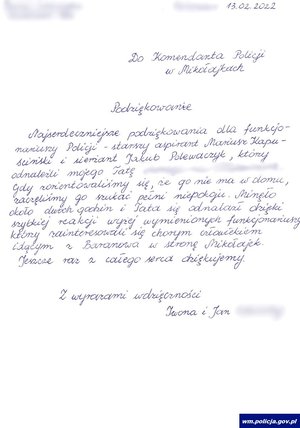 13.02.2022
Do Komendanta Policji
w Mikołajkach
Podziękowanie
Najserdeczniejsze podziękowania dla funkcjo-
nariuszy Policji - starszy aspirant Mariusz Kapu-
ściński i sierżant Jakub Polewaczyk, który
odnaleźli mojego Tatę
Gdy zorientowaliśmy się, że go nie ma w domu,
zaczęliśmy go szukać pełni niepokoju. Minęło
około dwóch godzin i Tata się odnalazł dzięki
szybkiej reakcji wyżej wymienionych funkcjonariuszy
którzy zainteresowali się chorym człowiekiem
idącym z Baranowa w stronę Mikołajek.
Jeszcze raz z całego serca dziękujemy.
Z wyrazami wdzięczności
Iwona i Jan
www.policja.gov.pl